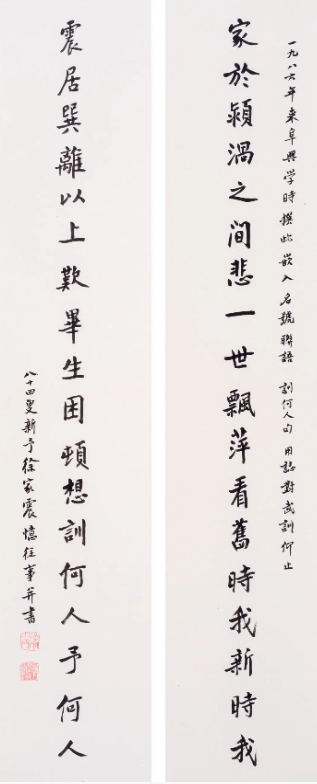 一九八六年来阜興学時撰此嵌入名號聯語 訓何人句 用誌對武訓仰止
家於潁渦之間悲一世飄萍看舊時我新時我
震居巽離以上歎畢生困頓想訓何人予何人
八十四叟新予徐家震憶往事并書